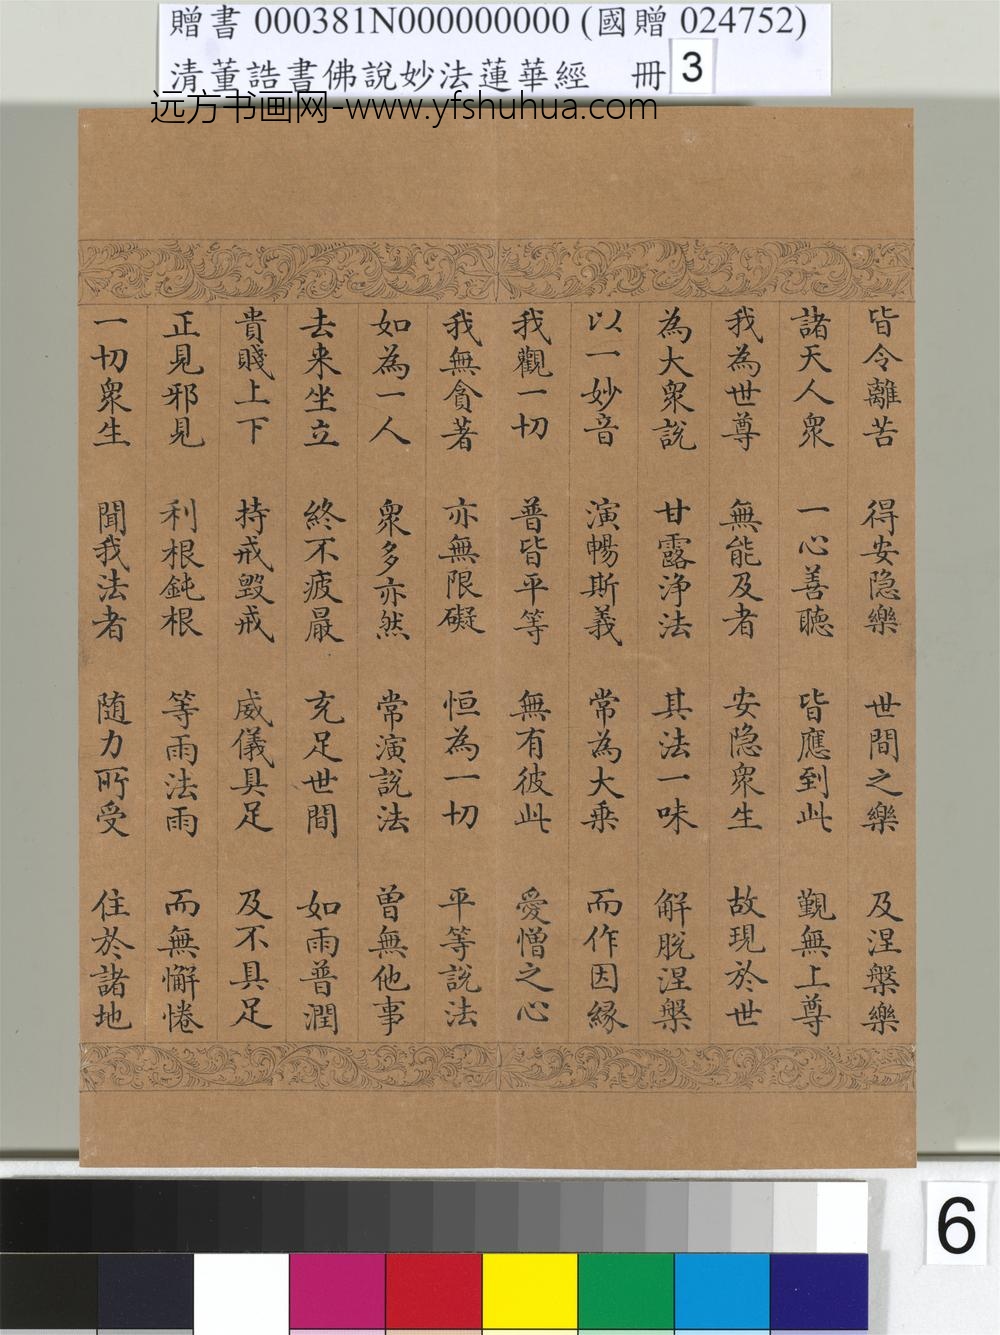 贈書 000381N000000000 (國贈 024752)
清董誥書佛說妙法蓮華經 冊 3
远方书画网-www.yfshuhua.com
皆令離苦 得安隐樂 世間之樂 及涅槃樂
諸天人衆 一心善聽 皆應到此 覲無上尊
我為世尊 無能及者 安隐衆生 故現於世
為大衆說 甘露浄法 其法一味 解脫涅槃
以一妙音 演暢斯義 常為大乗 而作因縁
我觀一切 普皆平等 無有彼此 愛憎之心
我無貪著 亦無限礙 恒為一切 平等說法
如為一人 衆多亦然 常演說法 曽無他事
去来坐立 終不疲厭 充足世間 如雨普潤
貴賤上下 持戒毀戒 威儀具足 及不具足
正見邪見 利根鈍根 等雨法雨 而無懈惓
一切衆生 聞我法者 随力所受 住於諸地
6